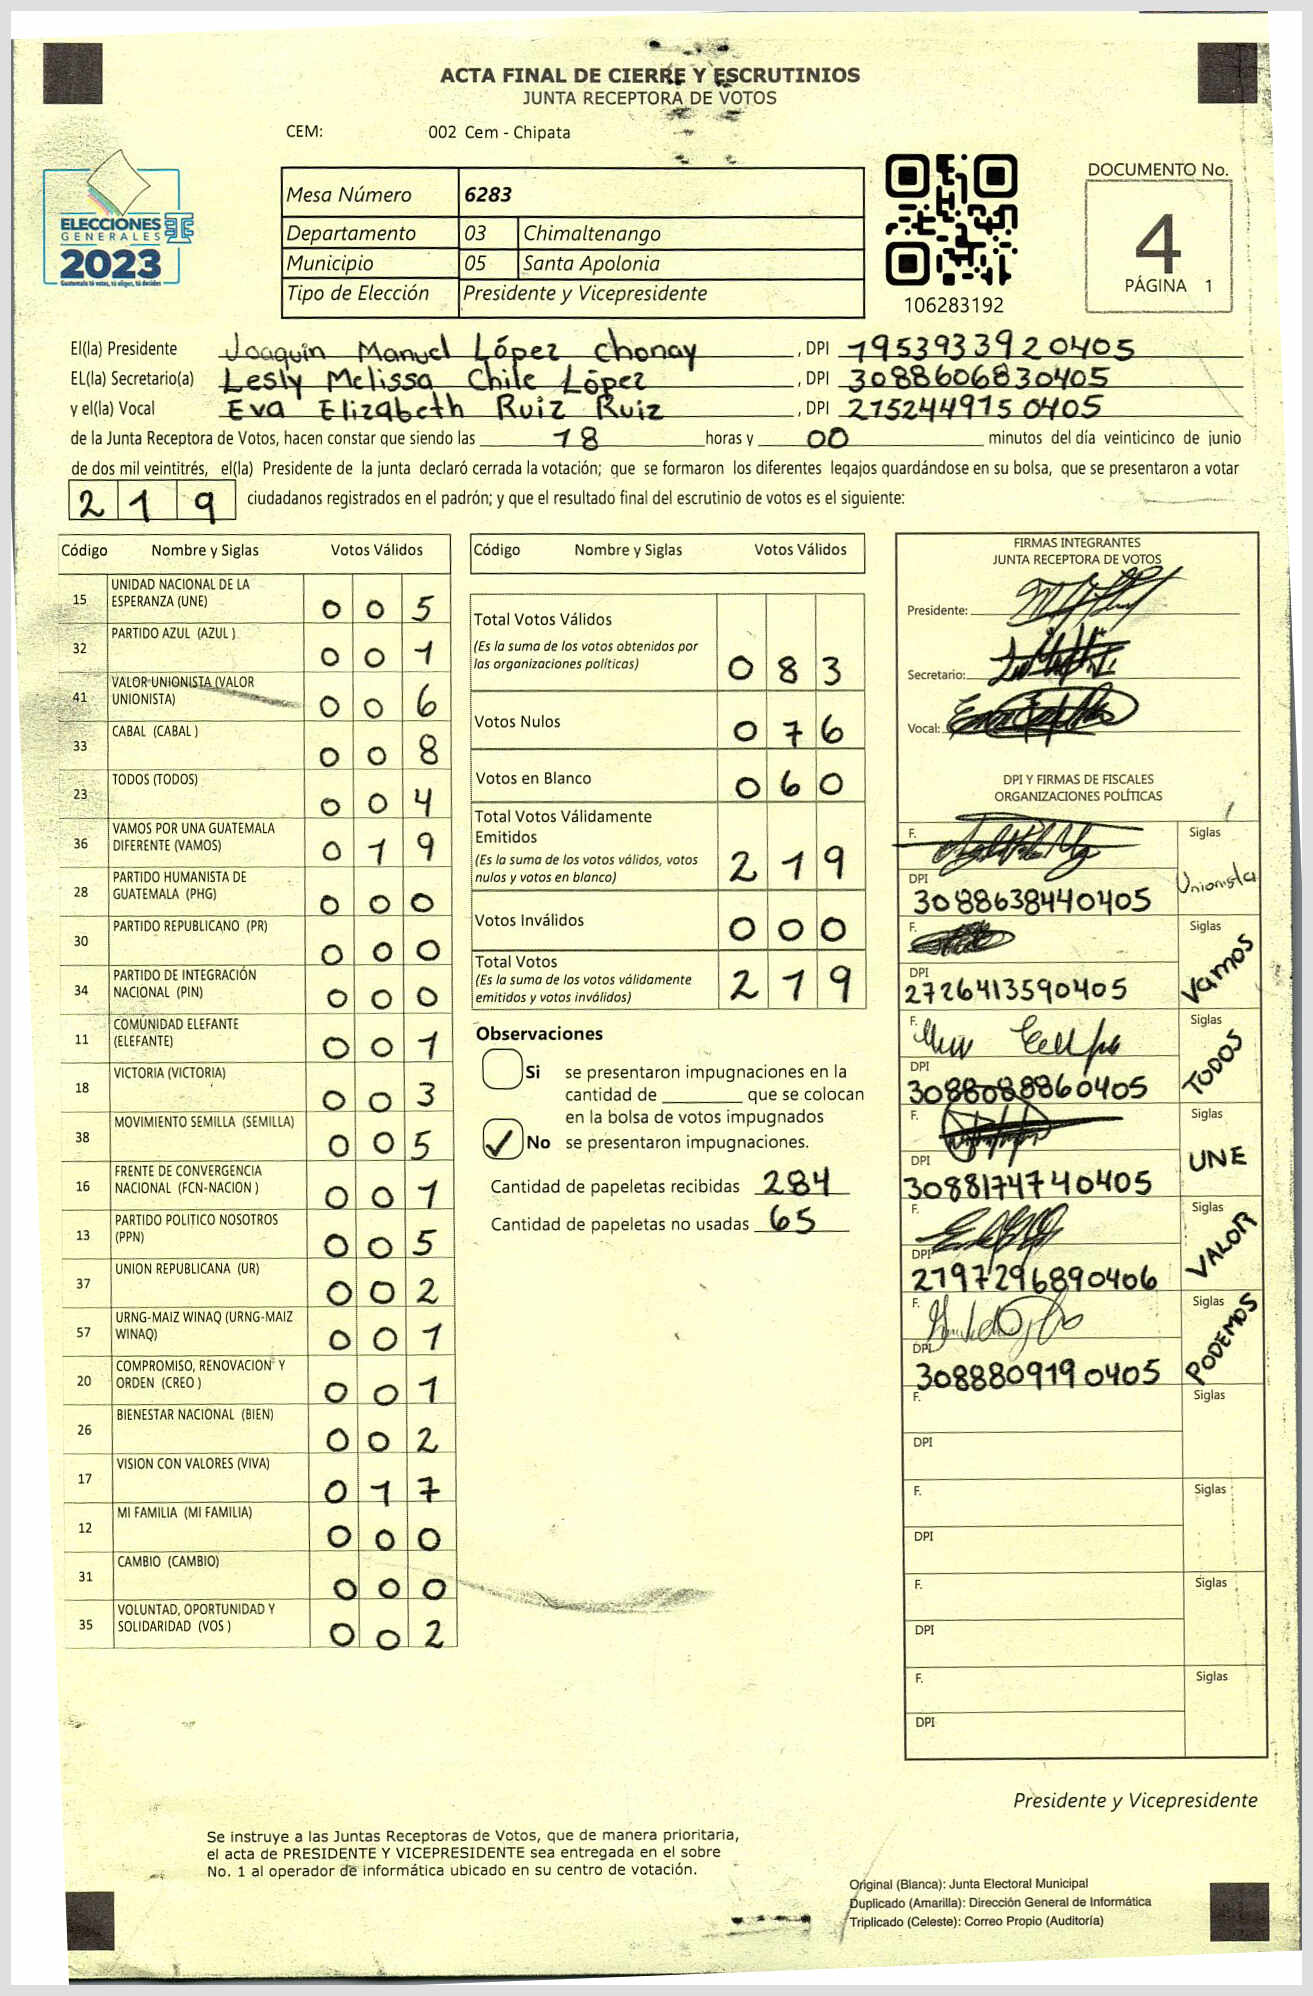 ACTA FINAL DE CIERRE Y ESCRUTINIOS
JUNTA RECEPTORA DE VOTOS
CEM: 002 Cem - Chipata
ELECCIONES
GENERALES
2023
Guatemala tú votas, tú eliges, tú decides
Mesa Número 6283
Departamento 03 Chimaltenango
Municipio 05 Santa Apolonia
Tipo de Elección Presidente y Vicepresidente
106283192
DOCUMENTO No.
4
PÁGINA 1
El(la) Presidente Joaquin Manuel López Chonay, DPI 1953933920405
EL(la) Secretario(a) Lesly Melissa Chile López, DPI 3088606830405
y el(la) Vocal Eva Elizabeth Ruiz Ruiz, DPI 2152449150405
de la Junta Receptora de Votos, hacen constar que siendo las 18 horas y 00 minutos del día veinticinco de junio
de dos mil veintitrés, el(la) Presidente de la junta declaró cerrada la votación; que se formaron los diferentes legajos guardándose en su bolsa, que se presentaron a votar
219 ciudadanos registrados en el padrón; y que el resultado final del escrutinio de votos es el siguiente:
Código Nombre y Siglas Votos Válidos
15 UNIDAD NACIONAL DE LA ESPERANZA (UNE) 0 0 5
32 PARTIDO AZUL (AZUL ) 0 0 1
41 VALOR UNIONISTA (VALOR UNIONISTA) 0 0 6
33 CABAL (CABAL ) 0 0 8
23 TODOS (TODOS) 0 0 4
36 VAMOS POR UNA GUATEMALA DIFERENTE (VAMOS) 0 1 9
28 PARTIDO HUMANISTA DE GUATEMALA (PHG) 0 0 0
30 PARTIDO REPUBLICANO (PR) 0 0 0
34 PARTIDO DE INTEGRACIÓN NACIONAL (PIN) 0 0 0
11 COMUNIDAD ELEFANTE (ELEFANTE) 0 0 1
18 VICTORIA (VICTORIA) 0 0 3
38 MOVIMIENTO SEMILLA (SEMILLA) 0 0 5
16 FRENTE DE CONVERGENCIA NACIONAL (FCN-NACION ) 0 0 1
13 PARTIDO POLITICO NOSOTROS (PPN) 0 0 5
37 UNION REPUBLICANA (UR) 0 0 2
57 URNG-MAIZ WINAQ (URNG-MAIZ WINAQ) 0 0 1
20 COMPROMISO, RENOVACION Y ORDEN (CREO ) 0 0 1
26 BIENESTAR NACIONAL (BIEN) 0 0 2
17 VISION CON VALORES (VIVA) 0 1 7
12 MI FAMILIA (MI FAMILIA) 0 0 0
31 CAMBIO (CAMBIO) 0 0 0
35 VOLUNTAD, OPORTUNIDAD Y SOLIDARIDAD (VOS ) 0 0 2
Código Nombre y Siglas Votos Válidos
Total Votos Válidos 0 8 3
(Es la suma de los votos obtenidos por
las organizaciones políticas)
Votos Nulos 0 7 6
Votos en Blanco 0 6 0
Total Votos Válidamente
Emitidos 2 1 9
(Es la suma de los votos válidos, votos
nulos y votos en blanco)
Votos Inválidos 0 0 0
Total Votos 2 1 9
(Es la suma de los votos válidamente
emitidos y votos inválidos)
Observaciones
Si se presentaron impugnaciones en la
cantidad de ________ que se colocan
en la bolsa de votos impugnados
✓ No se presentaron impugnaciones.
Cantidad de papeletas recibidas 284
Cantidad de papeletas no usadas 65
FIRMAS INTEGRANTES
JUNTA RECEPTORA DE VOTOS
Presidente:
Secretario:
Vocal:
DPI Y FIRMAS DE FISCALES
ORGANIZACIONES POLÍTICAS
F. Siglas Unionista
DPI 3088638440405
F. Siglas Vamos
DPI 2726413590405
F. Siglas TODOS
DPI 3088088860405
F. Siglas UNE
DPI 3088174740405
F. Siglas VALOR
DPI 2797296890406
F. Siglas PODEMOS
DPI 3088809190405
F. Siglas
DPI
F. Siglas
DPI
F. Siglas
DPI
F. Siglas
DPI
Presidente y Vicepresidente
Se instruye a las Juntas Receptoras de Votos, que de manera prioritaria,
el acta de PRESIDENTE Y VICEPRESIDENTE sea entregada en el sobre
No. 1 al operador de informática ubicado en su centro de votación.
Original (Blanca): Junta Electoral Municipal
Duplicado (Amarilla): Dirección General de Informática
Triplicado (Celeste): Correo Propio (Auditoría)